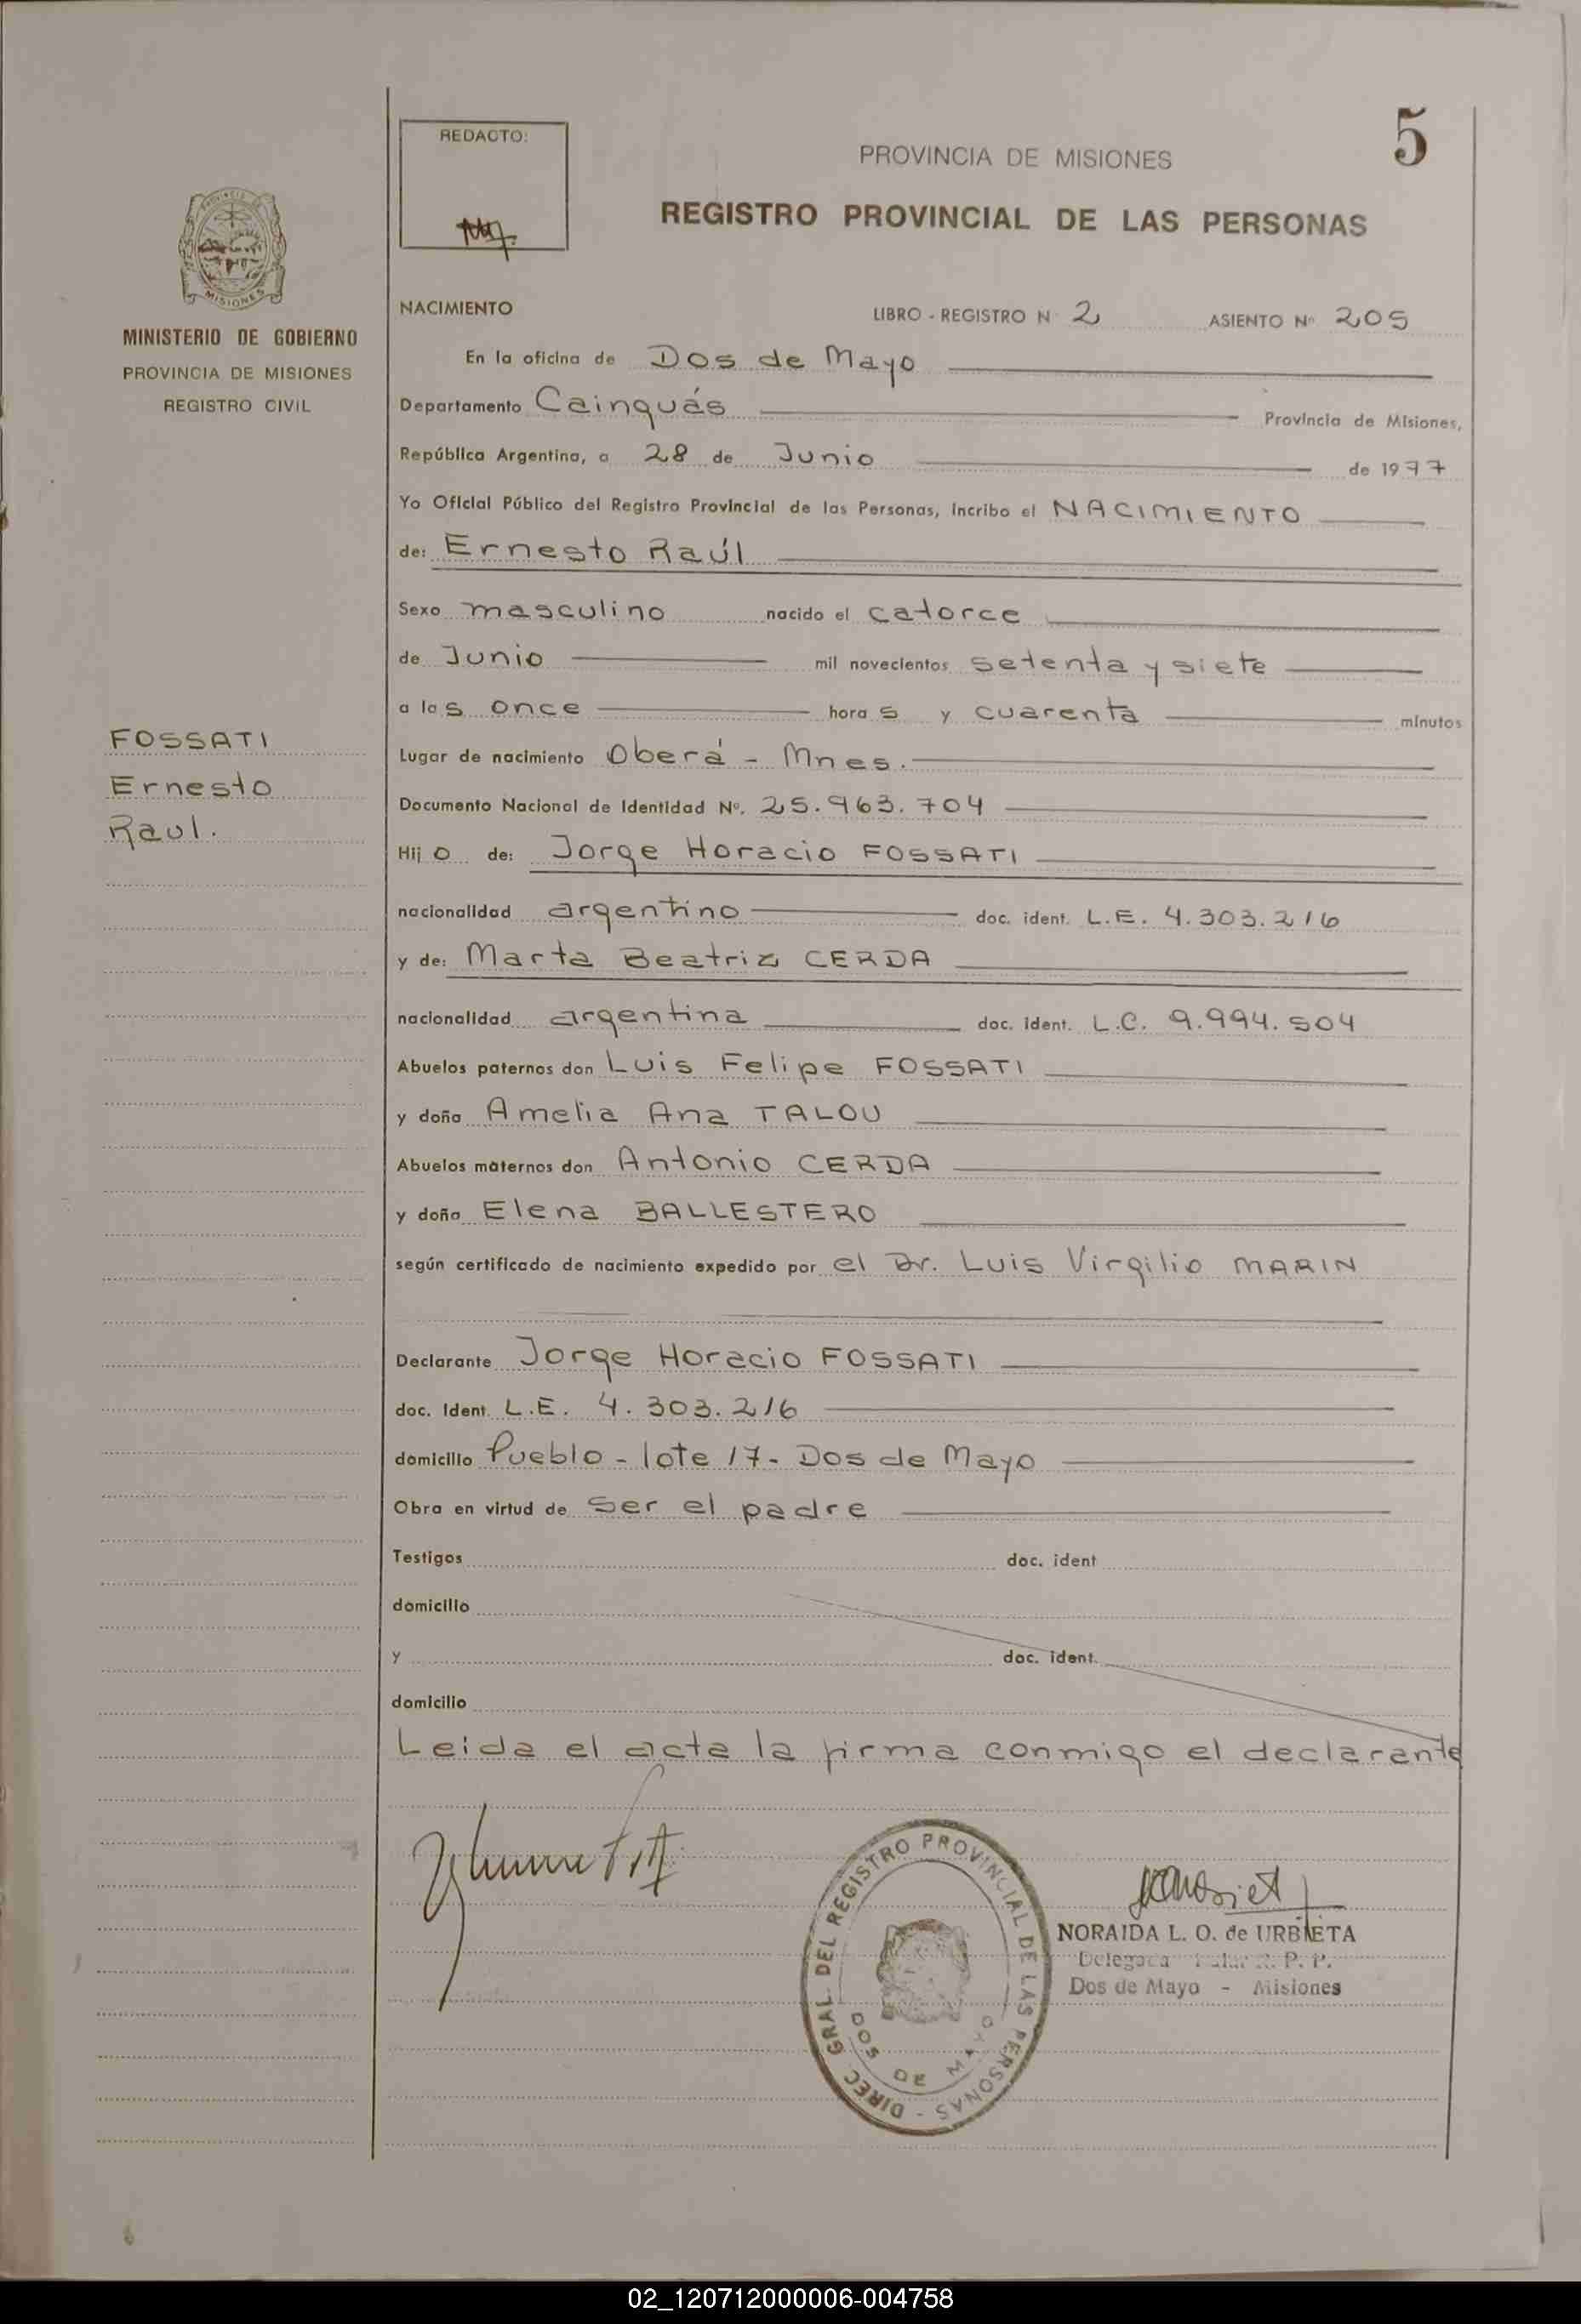 5
REDACTO:
PROVINCIA DE MISIONES
REGISTRO PROVINCIAL DE LAS PERSONAS
MISIONES
MINISTERIO DE GOBIERNO
PROVINCIA DE MISIONES
REGISTRO CIVIL
NACIMIENTO LIBRO - REGISTRO N 2 ASIENTO Nº 205
En la oficina de Dos de Mayo
Departamento Cainguás Provincia de Misiones,
República Argentina, a 28 de Junio de 1977
Yo Oficial Público del Registro Provincial de las Personas, incribo el NACIMIENTO
de: Ernesto Raúl
Sexo masculino nacido el catorce
de Junio mil novecientos setenta y siete
a las once horas y cuarenta minutos
FOSSATI
Ernesto
Raul.
Lugar de nacimiento Oberá - Mnes.
Documento Nacional de Identidad Nº. 25.963.704
Hijo de: Jorge Horacio FOSSATI
nacionalidad argentino doc. ident. L.E. 4.303.216
y de: Marta Beatriz CERDA
nacionalidad argentina doc. ident. L.C. 9.994.504
Abuelos paternos don Luis Felipe FOSSATI
y doña Amelia Ana TALOU
Abuelos maternos don Antonio CERDA
y doña Elena BALLESTERO
según certificado de nacimiento expedido por el Dr. Luis Virgilio MARIN
Declarante Jorge Horacio FOSSATI
doc. ident. L.E. 4.303.216
domicilio Pueblo - lote 17 - Dos de Mayo
Obra en virtud de ser el padre
Testigos doc. ident
domicilio
y doc. ident.
domicilio
Leida el acta la firma conmigo el declarante
DIREC. GRAL. DEL REGISTRO PROVINCIAL DE LAS PERSONAS -
DOS DE MAYO
NORAIDA L. O. de URBIETA
R. P. P.
Dos de Mayo - Misiones
02_120712000006-004758